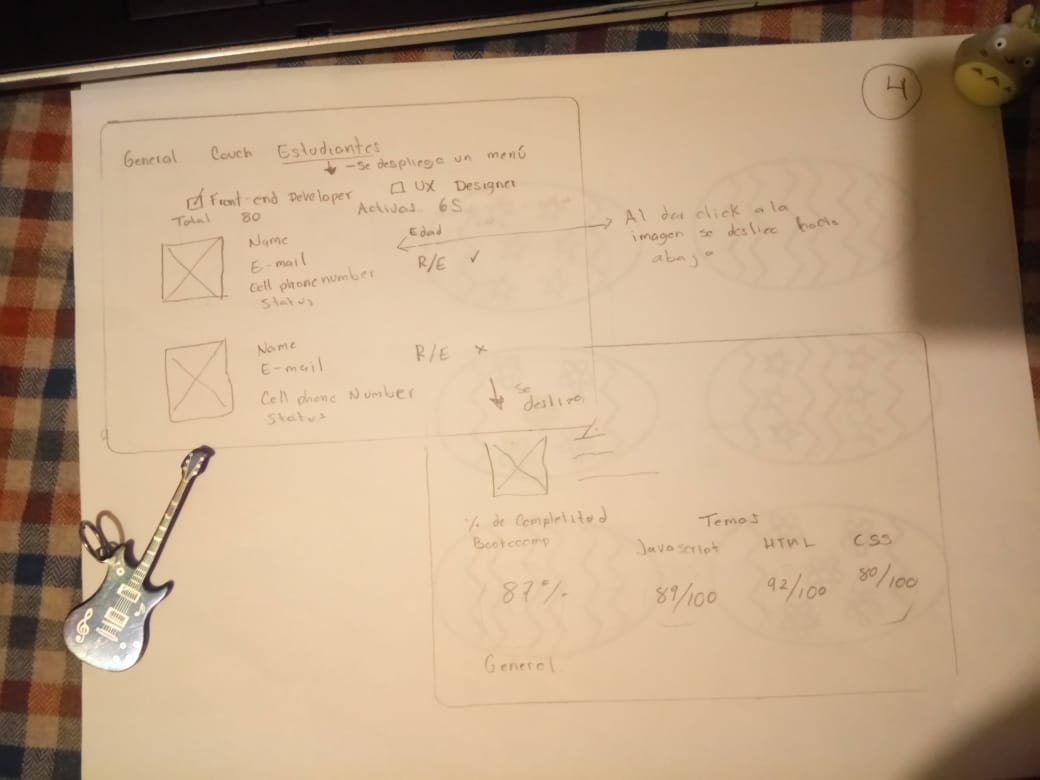 4
General Couch Estudiantes
- Se despliega un menú
Front-end Developer UX Designer
Total 80 Activas 65
Name
E-mail
Cell phone number
Status
Edad
R/E ✓
Al dar click a la
imagen se desliza hacia
abajo
Name
E-mail
Cell phone Number
Status
R/E x
se
desliza
% de Completitud
Bootcamp
87%
Temas
Javascript HTML CSS
89/100 92/100 80/100
General